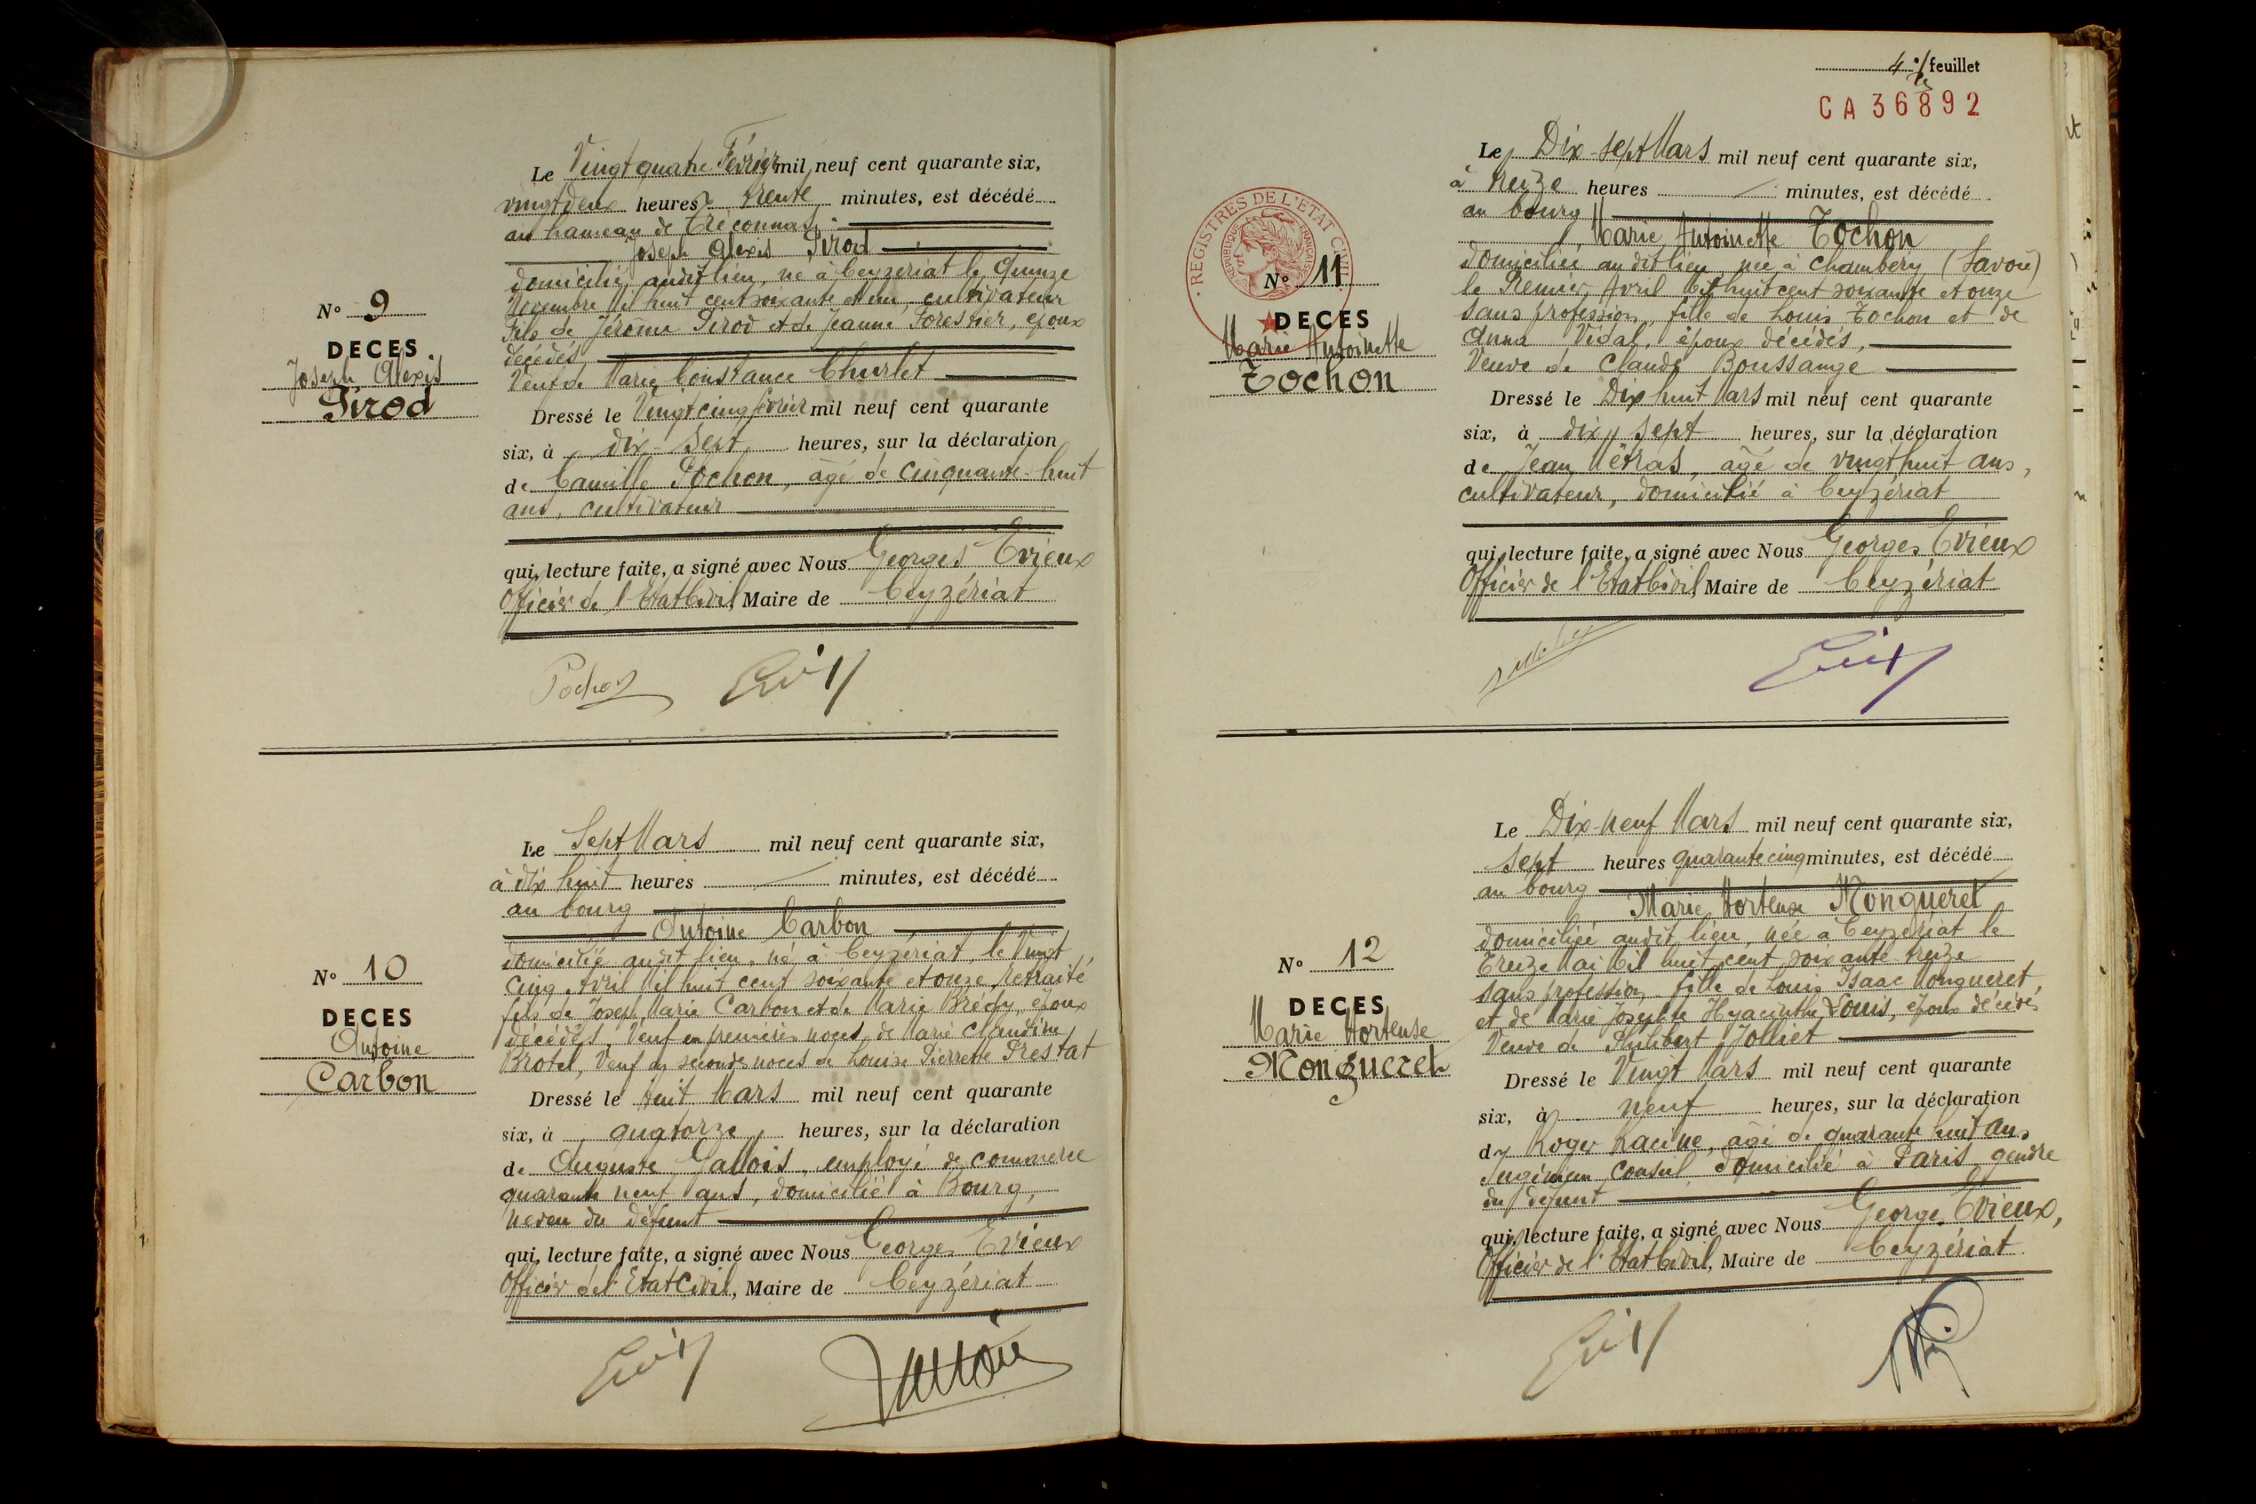 Le Vingt quatre Février mil neuf cent quarante six,
vingt deux heures trente minutes, est décédé
au hameau de Tréconnas
Joseph Alexis Pirod
domicilié audit lieu, né à Ceyzériat le Quinze
Novembre Mil huit cent soixante et un, cultivateur
Fils de Jérôme Pirod et de Jeanne Forestier, époux
décédés
Veuf de Marie Constance Churlet
N° 9
DECES
Joseph Alexis
Pirod
Dressé le Vingt cinq février mil neuf cent quarante
six, à dix-sept heures, sur la déclaration
de Camille Pochon, âgé de cinquante-huit
ans, cultivateur
qui, lecture faite, a signé avec Nous Georges Evieux
Officier de l'Etat Civil Maire de Ceyzériat
Pochon
Le Sept Mars mil neuf cent quarante six,
à dix huit heures minutes, est décédé
au bourg
Antoine Carbon
domicilié audit lieu, né à Ceyzériat, le Vingt
Cinq Avril Mil huit cent soixante et onze, retraité
fils de Josep Marie Carbon et de Marie Brédy, époux
décédés, Veuf en premières noces de Marie Claudine
Brotel, Veuf en secondes noces de Louise Pierrette Prestat
N° 10
DECES
Antoine
Carbon
Dressé le huit Mars mil neuf cent quarante
six, à quatorze heures, sur la déclaration
de Auguste Gallois, employé de commerce
quarante neuf ans, domicilié à Bourg,
neveu du défunt
qui, lecture faite, a signé avec Nous Georges Evieux
Officier de l'Etat Civil, Maire de Ceyzériat
4e feuillet
CA36892
Le Dix-sept Mars mil neuf cent quarante six,
à treize heures minutes, est décédé
au bourg
Marie Antoinette Tochon
domiciliée audit lieu, née à Chambéry (Savoie)
le Premier Avril Mil huit cent soixante et onze
sans profession, fille de Louis Tochon et de
Anna Vidal, époux décédés,
Veuve de Claude Boussange
REGISTRES DE L'ETAT CIVIL
REPUBLIQUE FRANÇAISE
N° 11
DECES
Marie Antoinette
Tochon
Dressé le Dix huit Mars mil neuf cent quarante
six, à dix sept heures, sur la déclaration
de Jean Métras, âgé de vingt huit ans,
cultivateur, domicilié à Ceyzériat
qui, lecture faite, a signé avec Nous Georges Evieux
Officier de l'Etat Civil Maire de Ceyzériat
Le Dix-neuf Mars mil neuf cent quarante six,
sept heures quarante cinq minutes, est décédé
au bourg
Marie Hortense Mongueret
domiciliée audit lieu, née à Ceyzériat le
Treize Mai Mil huit cent soixante treize
sans profession, fille de Louis Isaac Mongueret
et de Marie Josephte Hyacinthe Louis, époux décédés
Veuve de Philibert Jolliet
N° 12
DECES
Marie Hortense
Mongueret
Dressé le Vingt Mars mil neuf cent quarante
six, à neuf heures, sur la déclaration
de Roger Racine, âgé de quarante huit ans,
Ingénieur Conseil domicilié à Paris, gendre
du défunt
qui, lecture faite, a signé avec Nous Georges Evieux,
Officier de l'Etat Civil, Maire de Ceyzériat